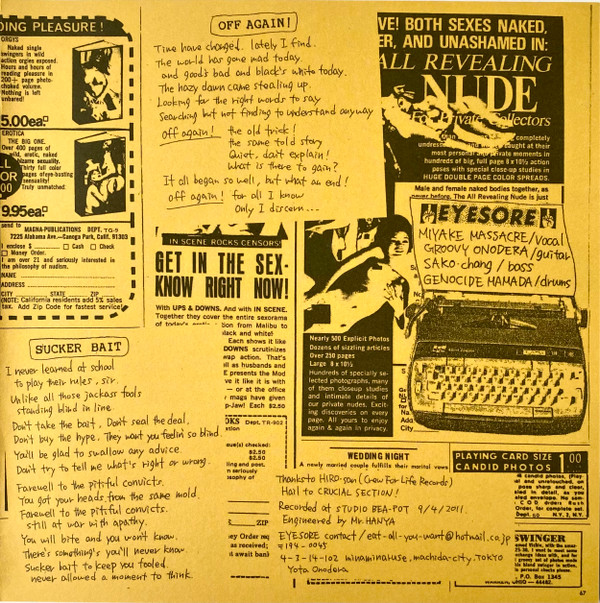 DING PLEASURE!
ORGYS
Naked single
swingers in wild
action orgies exposed.
Hours and hours of
reading pleasure in
200+ page photo-
choked volume.
Nothing is left
unbared!
5.00ea
EROTICA
THE BIG ONE.
Over 400 pages of
wild, erotic, naked
bizarre sexuality.
Thirty full color
pages of eye-busting
sensuality!
Truly unmatched:
9.95ea
send to
MAGNA-PUBLICATIONS DEPT. TG-9
7225 Alabama Ave.—Canoga Park, Calif. 91303
I enclose $ Cash Check
Money Order.
I am over 21 and seriously interested in
the philosophy of nudism.
NAME
ADDRESS
CITY STATE ZIP
(NOTE: California residents add 5% sales
tax. Add Zip Code for fastest service!
OFF AGAIN!
Time have changed. lately I find.
The world has gone mad today.
and good's bad and black's white today.
The hazy dawn came stealing up.
Looking for the right words to say
Searching but not finding to understand anyway
off again! the old trick!
the same told story
Quiet, don't explain!
what is there to gain?
It all began so well, but what an end!
off again! for all I know
Only I discern...
VE! BOTH SEXES NAKED,
ER, AND UNASHAMED IN:
ALL REVEALING
NUDE
For Private Collectors
completely
caught at their
most personal and private moments in
hundreds of big, full page 8 x 10½ action
poses with special close-up studies in
HUGE DOUBLE PAGE COLOR SPREADS.
Male and female naked bodies together, as
never before. The All Revealing Nude is just
EYESORE
MIYAKE MASSACRE/vocal
GROOVY ONODERA/guitar
SAKO-chang/bass
GENOCIDE HAMADA/drums
IN SCENE ROCKS CENSORS!
GET IN THE SEX-
KNOW RIGHT NOW!
With UPS & DOWNS. And with IN SCENE.
Together they cover the entire sexorama
tion from Malibu to
lack and white!
Each shows it like
DOWNS scrutinizes
wap action. That's
ll as husbands and
E presents the Mod
ve it like it is with
— or at the office
mags have given
p-Jaw! Each $2.50
Nearly 500 Explicit Photos
Dozens of sizzling articles
Over 250 pages
Large 8 x 10½
Hundreds of specially se-
lected photographs, many
of them closeup studies
and intimate details of
our private nudes. Excit-
ing discoveries on every
page. All yours to enjoy
again & again in privacy.
SUCKER BAIT
I never learned at school
to play their rules, sir.
Unlike all those jackass tools
standing blind in line
Don't take the bait. Don't seal the deal.
Don't buy the hype. They want you feelin' so blind.
You'll be glad to swallow any advice.
Don't try to tell me what's right or wrong.
Farewell to the pitiful convicts.
You got your heads from the same mold.
Farewell to the pitiful convicts.
still at war with apathy.
You will bite and you won't know.
There's something's you'll never know
Sucker bait to keep you fooled.
never allowed a moment to think.
OKS Dept. TR-902
ue(s) checked:
$2.50
$2.50
ing and post.
n seriously
sophy of
ZIP
ey Order req
as received;
t await bank)
WEDDING NIGHT
A newly married couple fulfills their marital vows
PLAYING CARD SIZE 1 00
CANDID PHOTOS
Thanks to HIRO-son (Grow For Life Records)
Hail to CRUCIAL SECTION!
Recorded at STUDIO BEA-POT 9/4/2011.
Engineered by Mr. HANYA
EYESORE contact/eat-all-you-want@hotmail.co.jp
〒194-0045
4-3-14-102 minaminaruse, machida-city, TOKYO
Yota Onodera
SWINGER
P.O. Box 1345
67